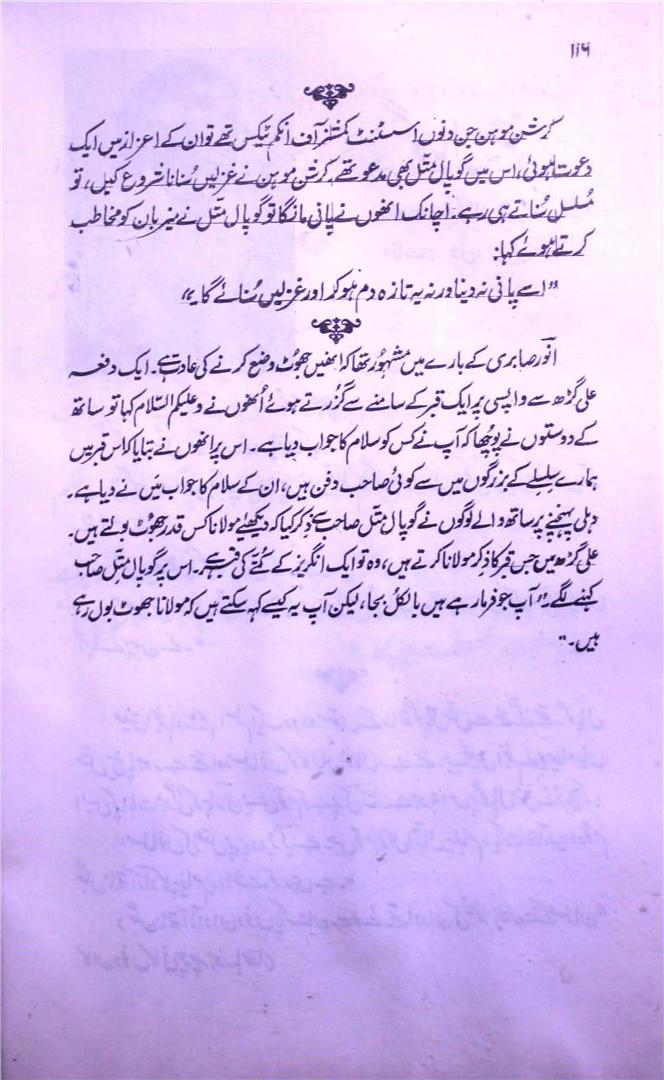 ۱۱۶
کرشن موہن جن دنوں اسسٹنٹ کمشنر آف انکم ٹیکس تھے تو ان کے اعزاز میں ایک
دعوت ہوئی، اس میں گوپال متّل بھی مدعو تھے۔ کرشن موہن نے غزلیں سُنانا شروع کیں، تو
مُسلسل سُناتے ہی رہے۔ اچانک انھوں نے پانی مانگا تو گوپال متّل نے میزبان کو مخاطب
کرتے ہوئے کہا:
"اسے پانی نہ دینا ورنہ یہ تازہ دم ہو کر اور غزلیں سُنائے گا۔"
انور صابری کے بارے میں مشہور تھا کہ انھیں جھوٹ وضع کرنے کی عادت ہے۔ ایک دفعہ
علی گڑھ سے واپسی پر ایک قبر کے سامنے سے گزرتے ہوئے اُنھوں نے وعلیکم السّلام کہا تو ساتھ
کے دوستوں نے پوچھا کہ آپ نے کس کو سلام کا جواب دیا ہے۔ اس پر انھوں نے بتایا کہ اس قبر میں
ہمارے سلسلے کے بزرگوں میں سے کوئی صاحب دفن ہیں، ان کے سلام کا جواب میں نے دیا ہے۔
دہلی پہنچنے پر ساتھ والے لوگوں نے گوپال متّل صاحب سے ذکر کیا کہ دیکھئے مولانا کس قدر جھوٹ بولتے ہیں۔
علی گڑھ میں جس قبر کا ذِکر مولانا کرتے ہیں، وہ تو ایک انگریز کے کُتّے کی قبر ہے۔ اس پر گوپال متّل صاحب
کہنے لگے۔ "آپ جو فرما رہے ہیں بالکل بجا، لیکن آپ یہ کیسے کہہ سکتے ہیں کہ مولانا جھوٹ بول رہے
ہیں۔"